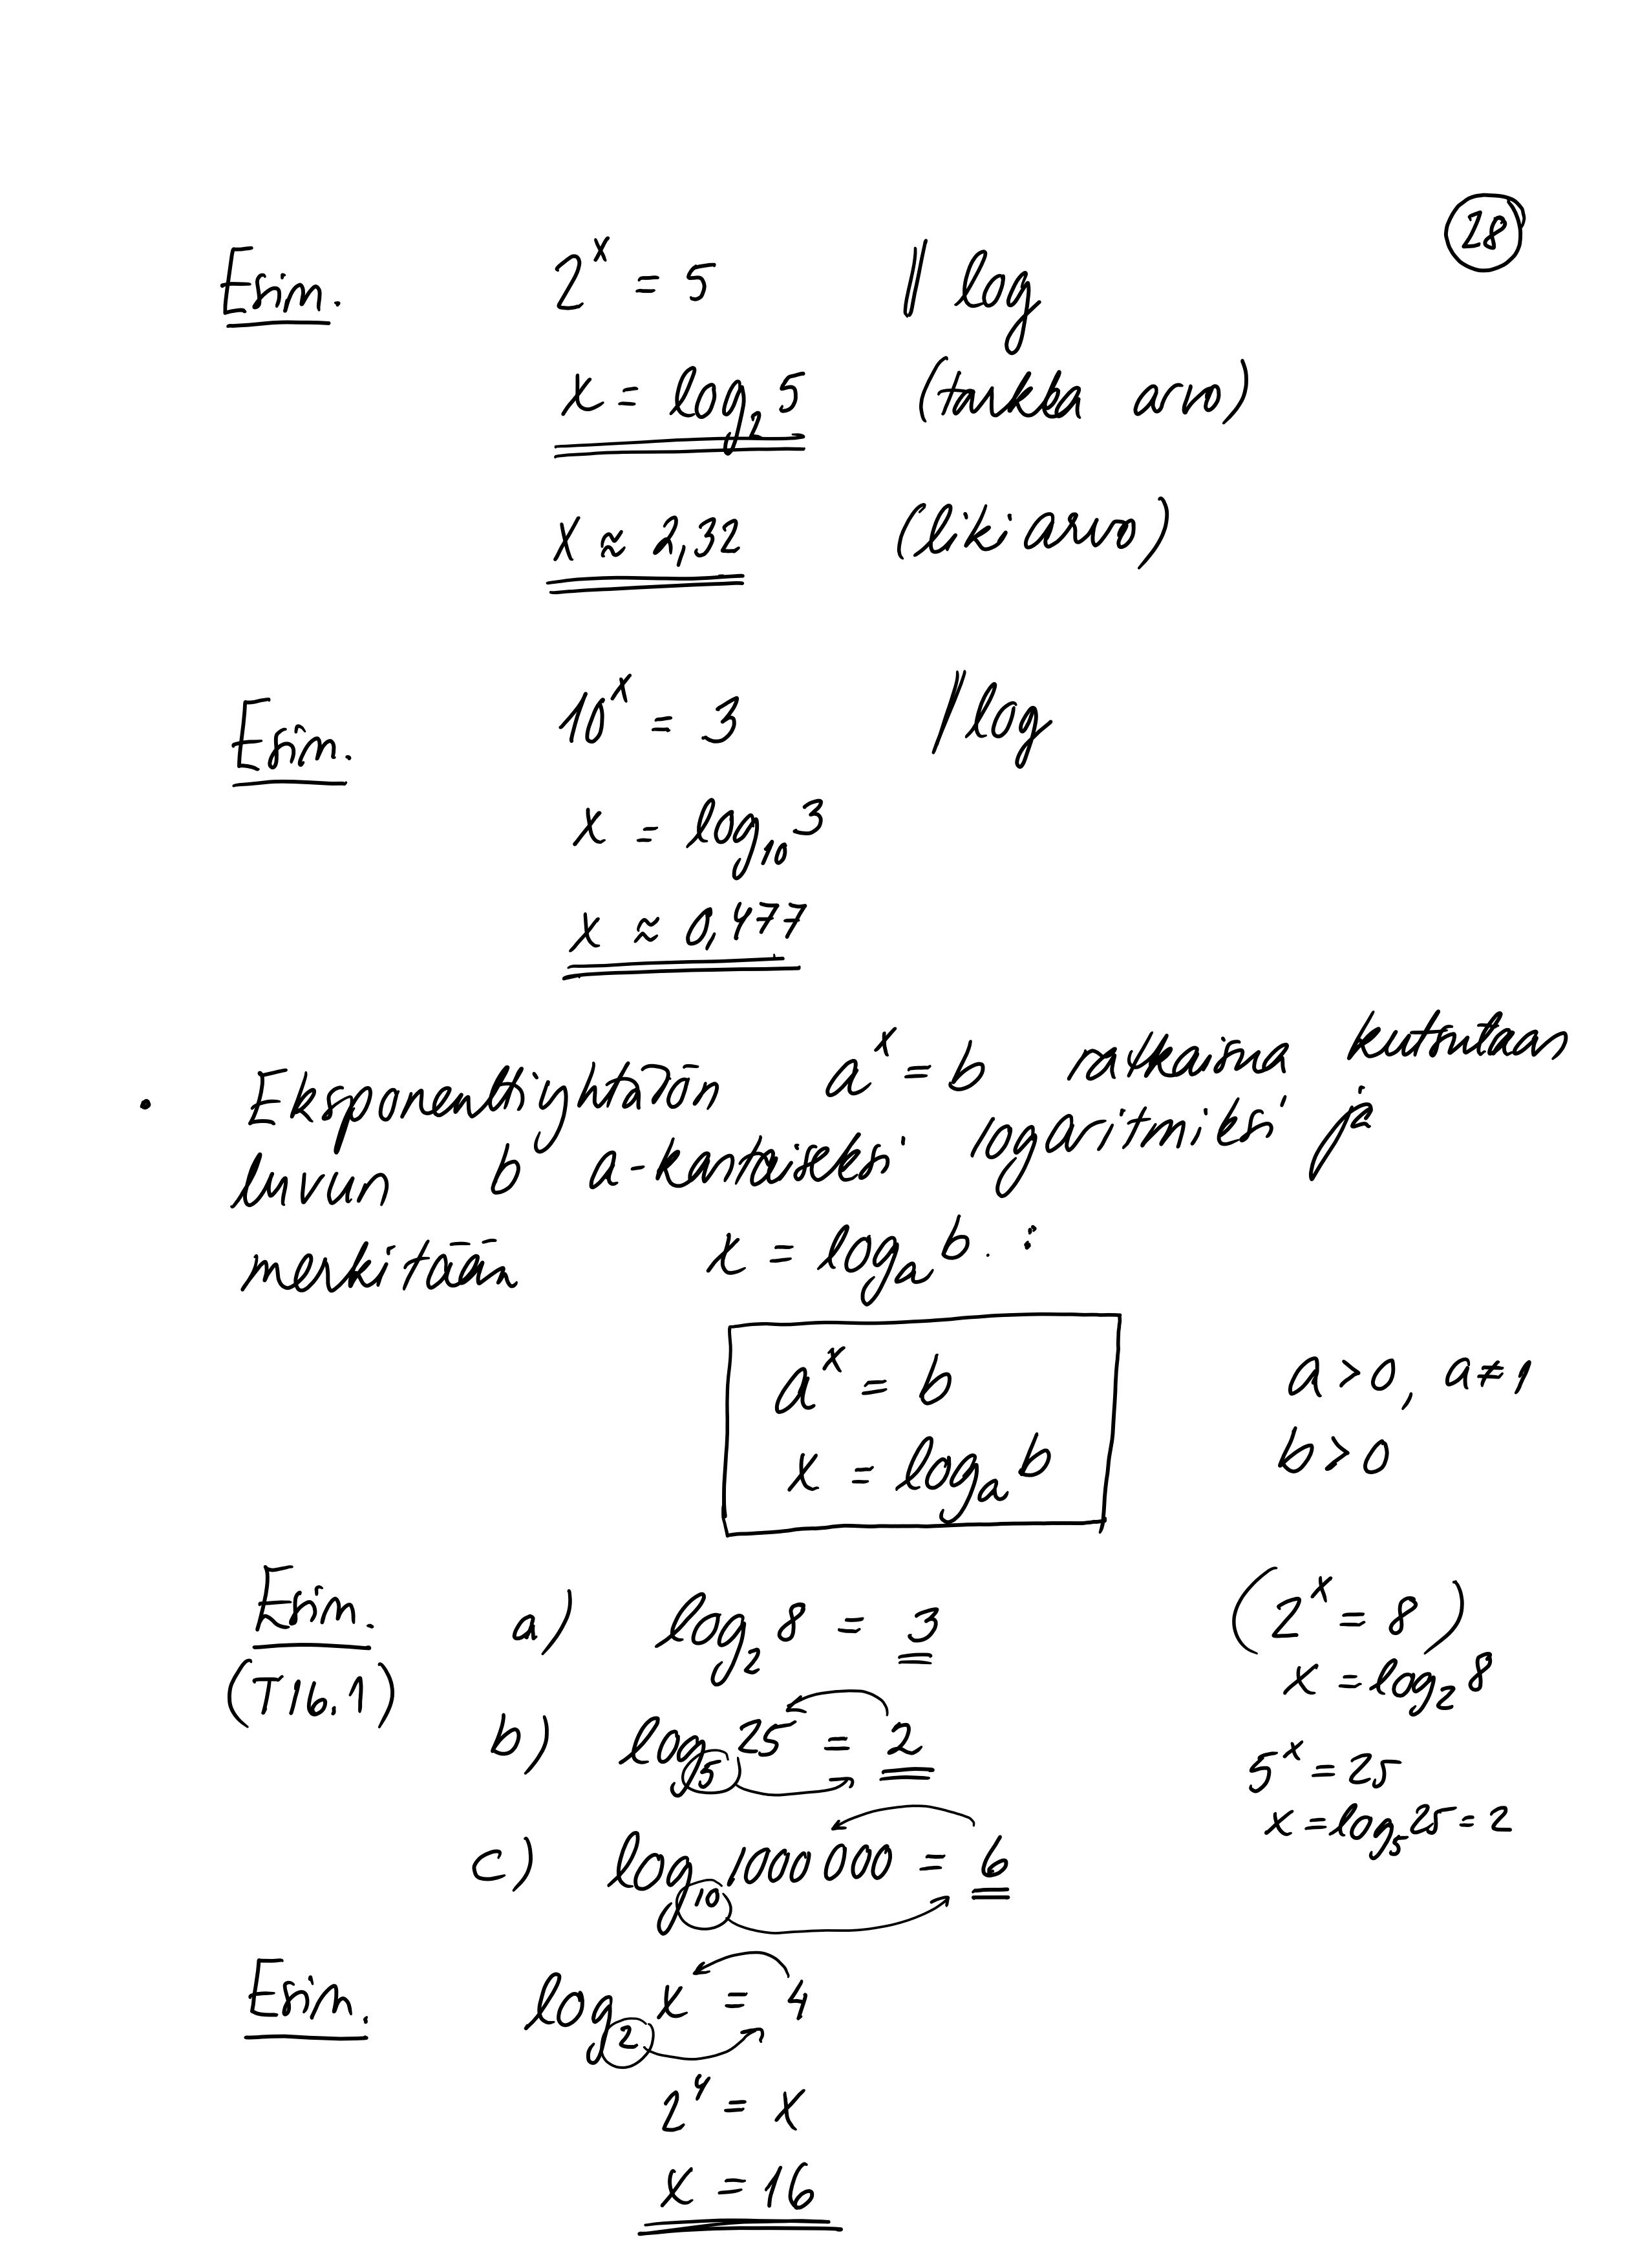 28
Esim. 2^x = 5 || log
x = log_2 5 (tarkka arvo)
x ≈ 2,32 (likiarvo)
Esim. 10^x = 3 || log
x = log_10 3
x ≈ 0,477
• Eksponenttiyhtälön a^x = b ratkaisua kutsutaan
luvun b a-kantaiseksi logaritmiksi ja
merkitään x = log_a b. :
a^x = b a > 0, a ≠ 1
x = log_a b b > 0
Esim. a) log_2 8 = 3 (2^x = 8)
(T16.1) x = log_2 8
b) log_5 25 = 2 5^x = 25
x = log_5 25 = 2
c) log_10 1000 000 = 6
Esim. log_2 x = 4
2^4 = x
x = 16